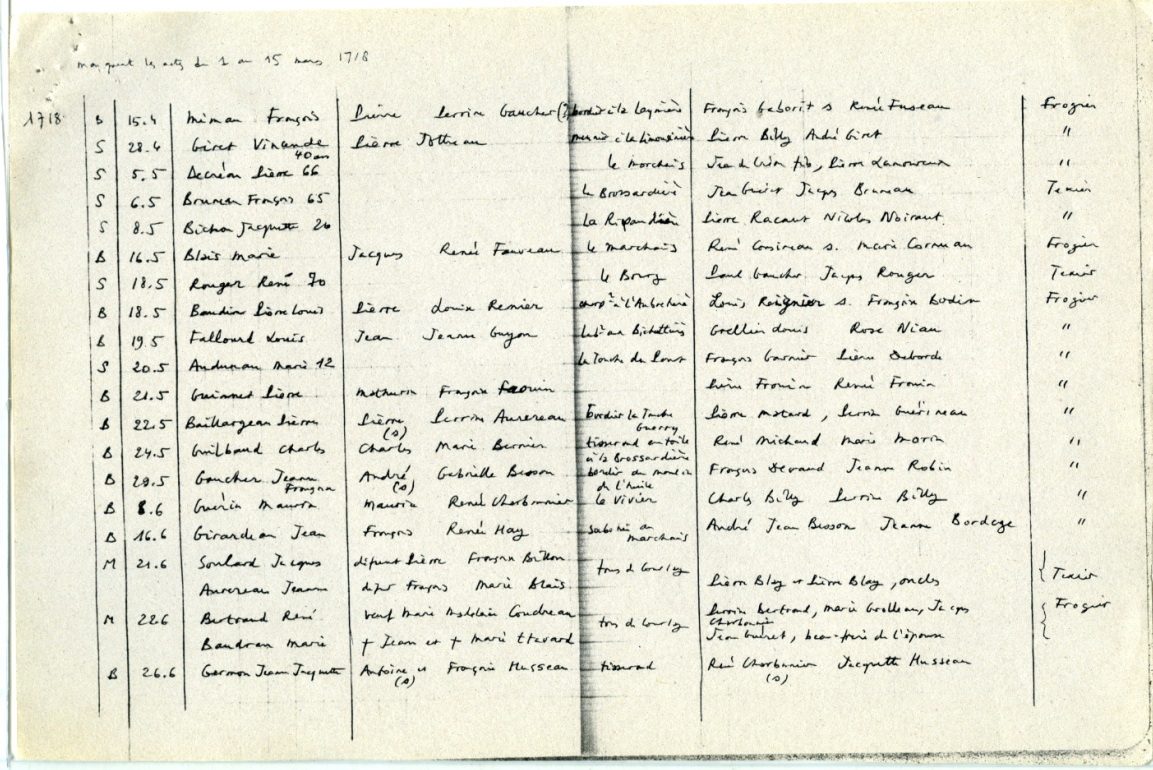 manquent les actes du 1 au 15 mars 1718
1718 B 15.4 Miman François Pierre Perrine Gaucher(?) bordier à la François Gaborit s René Fuseau Frogier
S 28.4 Giret Vinande 40 ans Pierre meunier à la Limousinière Pierre Billy André Giret "
S 5.5 Decréon Pierre 66 le Marchais fils, Pierre Lamoureux "
S 6.5 Bruneau François 65 la Brossardière Jean Jacques Bruneau Texier
S 8.5 Bichon Jacquette 26 La Ripaudière Pierre Racaut Nicolas Noiraut "
B 16.5 Blais Marie Jacques Renée Fauveau le Marchais René Cousineau s. Marie Frogier
S 18.5 Rouger René 70 le Bourg Paul Gaucher Jacques Rouger Texier
B 18.5 Baudin Pierre Louis Pierre Louise Renier à l'Aubretière Louis s. Françoise Bodin Frogier
B 19.5 Fallourd Louis Jean Jeanne Guyon Grellier Louis Rose Niau "
S 20.5 Audureau Marie 12 la Touche de Pierre Deborde "
B 21.5 Guinnet Pierre Mathurin Françoise Frouin Pierre Frouin Renée Frouin "
B 22.5 Baillargeau Pierre Pierre (s) Perrine Aurereau bordier la Touche Guerry Pierre Motard, Perrine Guérineau "
B 24.5 Guilbaud Charles Charles Marie Bernier tisserand en toile à la Brossardière René Michaud Marie Morin "
B 29.5 Gaucher Jeanne Françoise André (s) Gabrielle Besson bordier du moulin de l'huile François Devaud Jeanne Robin "
B 8.6 Guérin Maurice Maurice Renée Charbonnier le Vivier Charles Billy Perrine Billy "
B 16.6 Girardeau Jean François Renée Hay sabotier au marchais André Jean Besson Jeanne Bordage "
M 21.6 Soulard Jacques défunt Pierre Françoise Billon tous d
Aurereau Jeanne def François Marie Blais Pierre Blay et Pierre Blay, oncles Texier
M 22.6 Bertrand René veuf Marie Madelaine Coudreau tous d Perrine Bertrand, Marie Grolleau, Jacques Charbonnier Frogier
Baudran Marie + Jean et + Marie Jean Guinet, beau-frère de l'épouse
B 26.6 Germon Jean Jacquette Antoine (s) et Françoise Husseau tisserand René Charbonnier (s) Jacquette Husseau